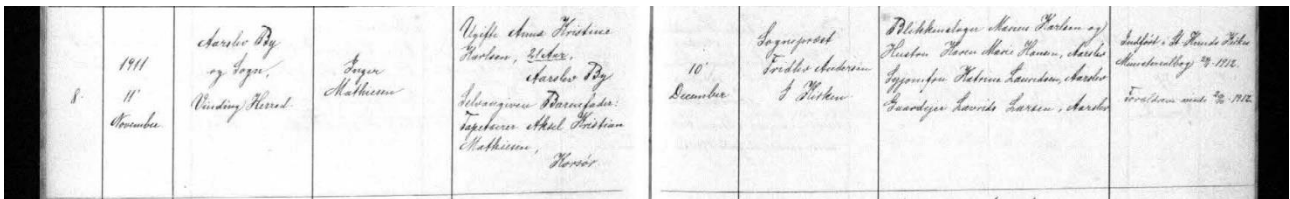 8.
1911
11'
November
Aarslev By
og Sogn,
Vinding Herred
Inger
Mathiesen
Ugifte Anna Kristine
Karlsen, 21 Aar,
Aarslev By
Selvangiven Barnefader:
Tapetserer Aksel Kristian
Mathiesen,
Korsør
10'
December
Sognepræst
Fridlev Andersen
I Kirken
Karlsen og
Hustru Karen Marie Hansen, Aarslev
Katrine Lauridsen, Aarslev
Gaardejer Laurids Larsen, Aarslev
Indført i St. Knuds Kirkes
Ministerialbog 1912.
Forældrene 1912.